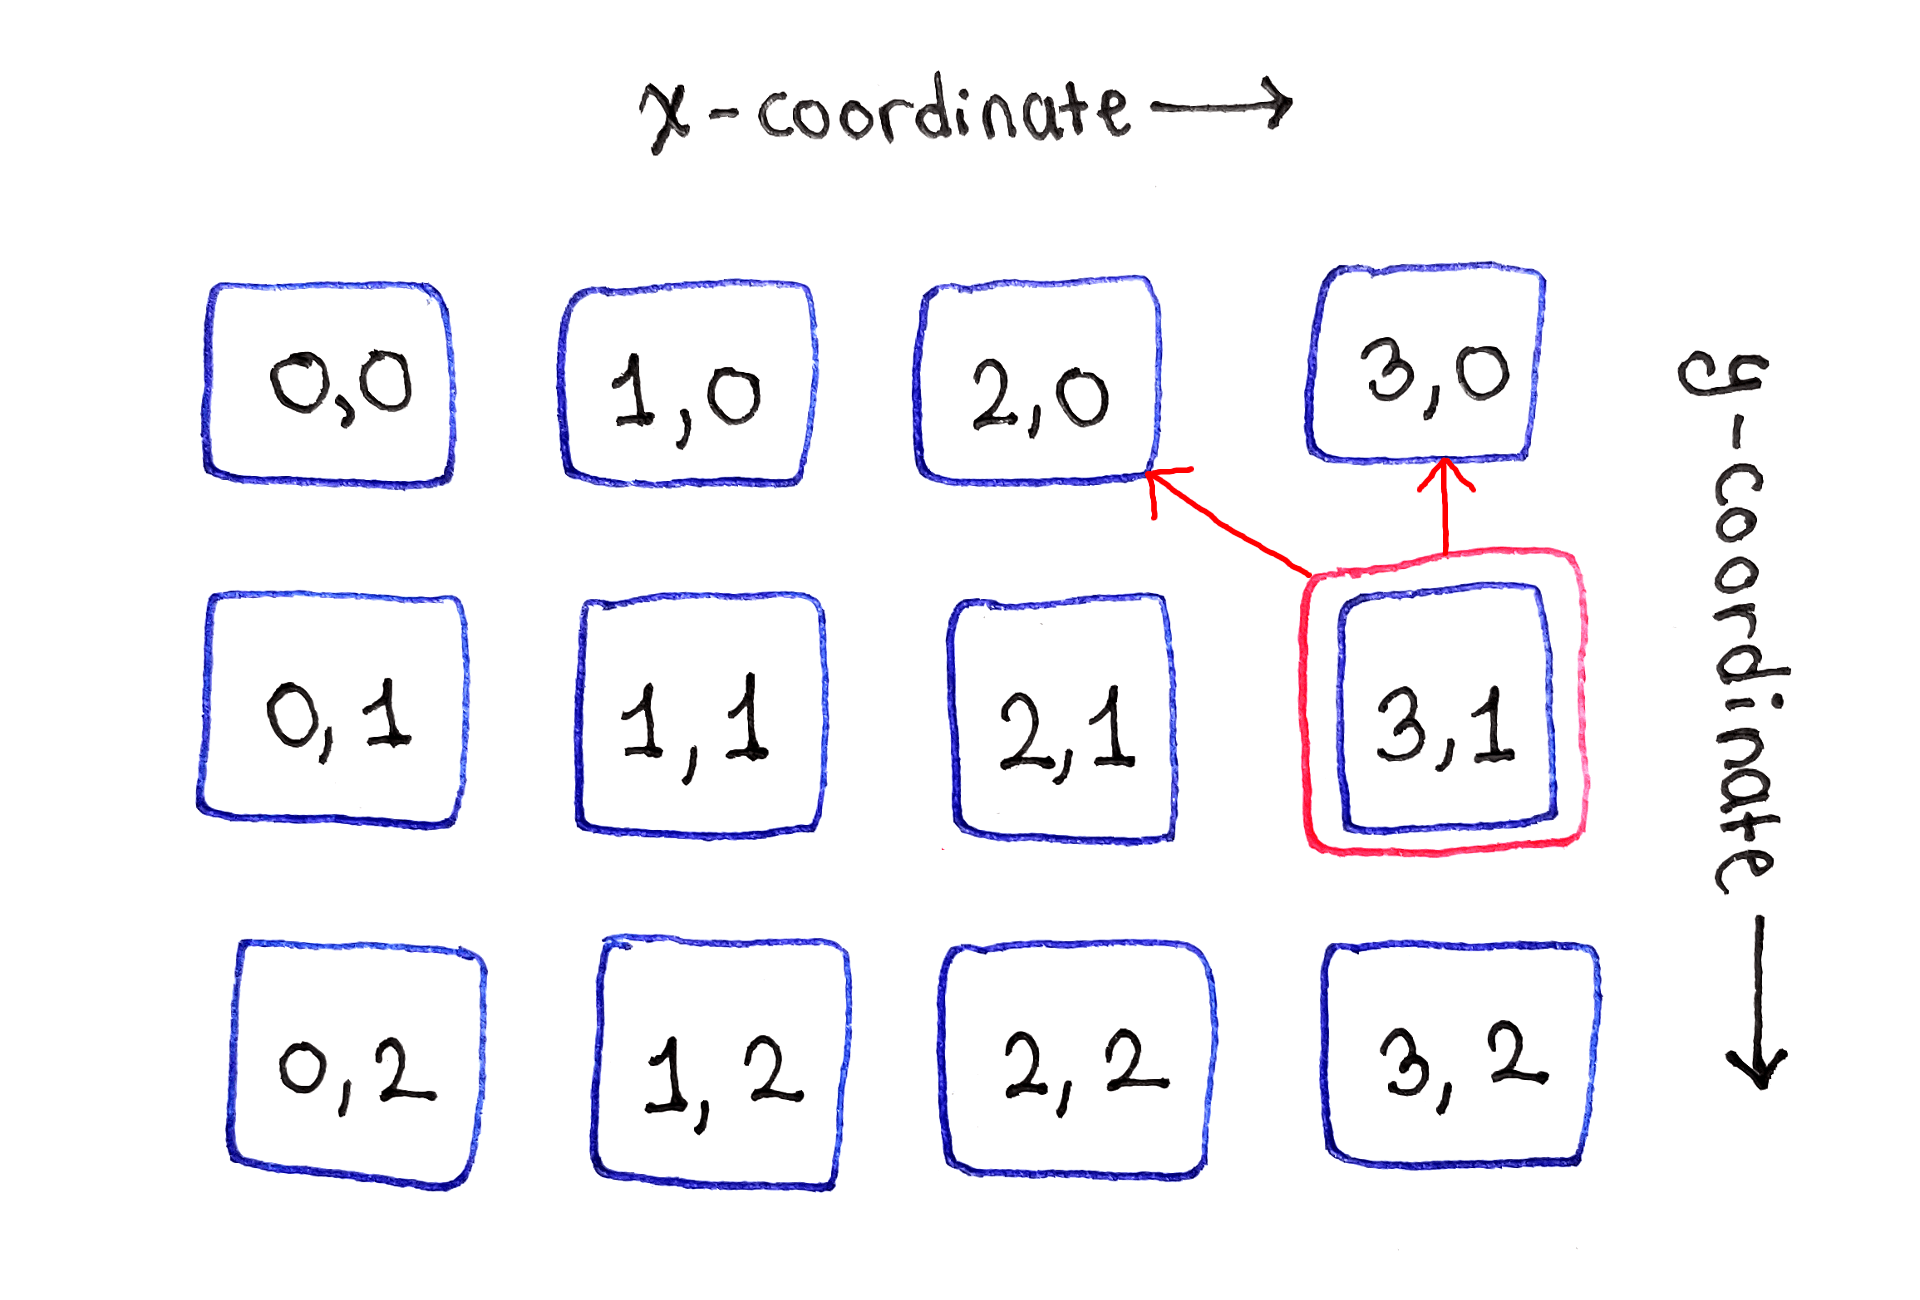 x-coordinate
0,0 1,0 2,0 3,0
0,1 1,1 2,1 3,1
0,2 1,2 2,2 3,2
y-coordinate